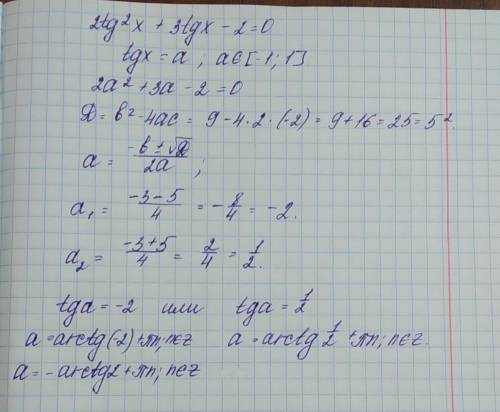 2tg²x + 3tgx - 2 = 0
tgx = a ; a∈[-1; 1]
2a² + 3a - 2 = 0
D = b² - 4ac = 9 - 4·2·(-2) = 9 + 16 = 25 = 5².
a = (-b ± √D)/2a ;
a₁ = (-3 - 5)/4 = -8/4 = -2.
a₂ = (-3 + 5)/4 = 2/4 = 1/2.
tga = -2 или tga = 1/2
a = arctg(-2) + πn; n∈z a = arctg 1/2 + πn; n∈z.
a = - arctg2 + πn; n∈z